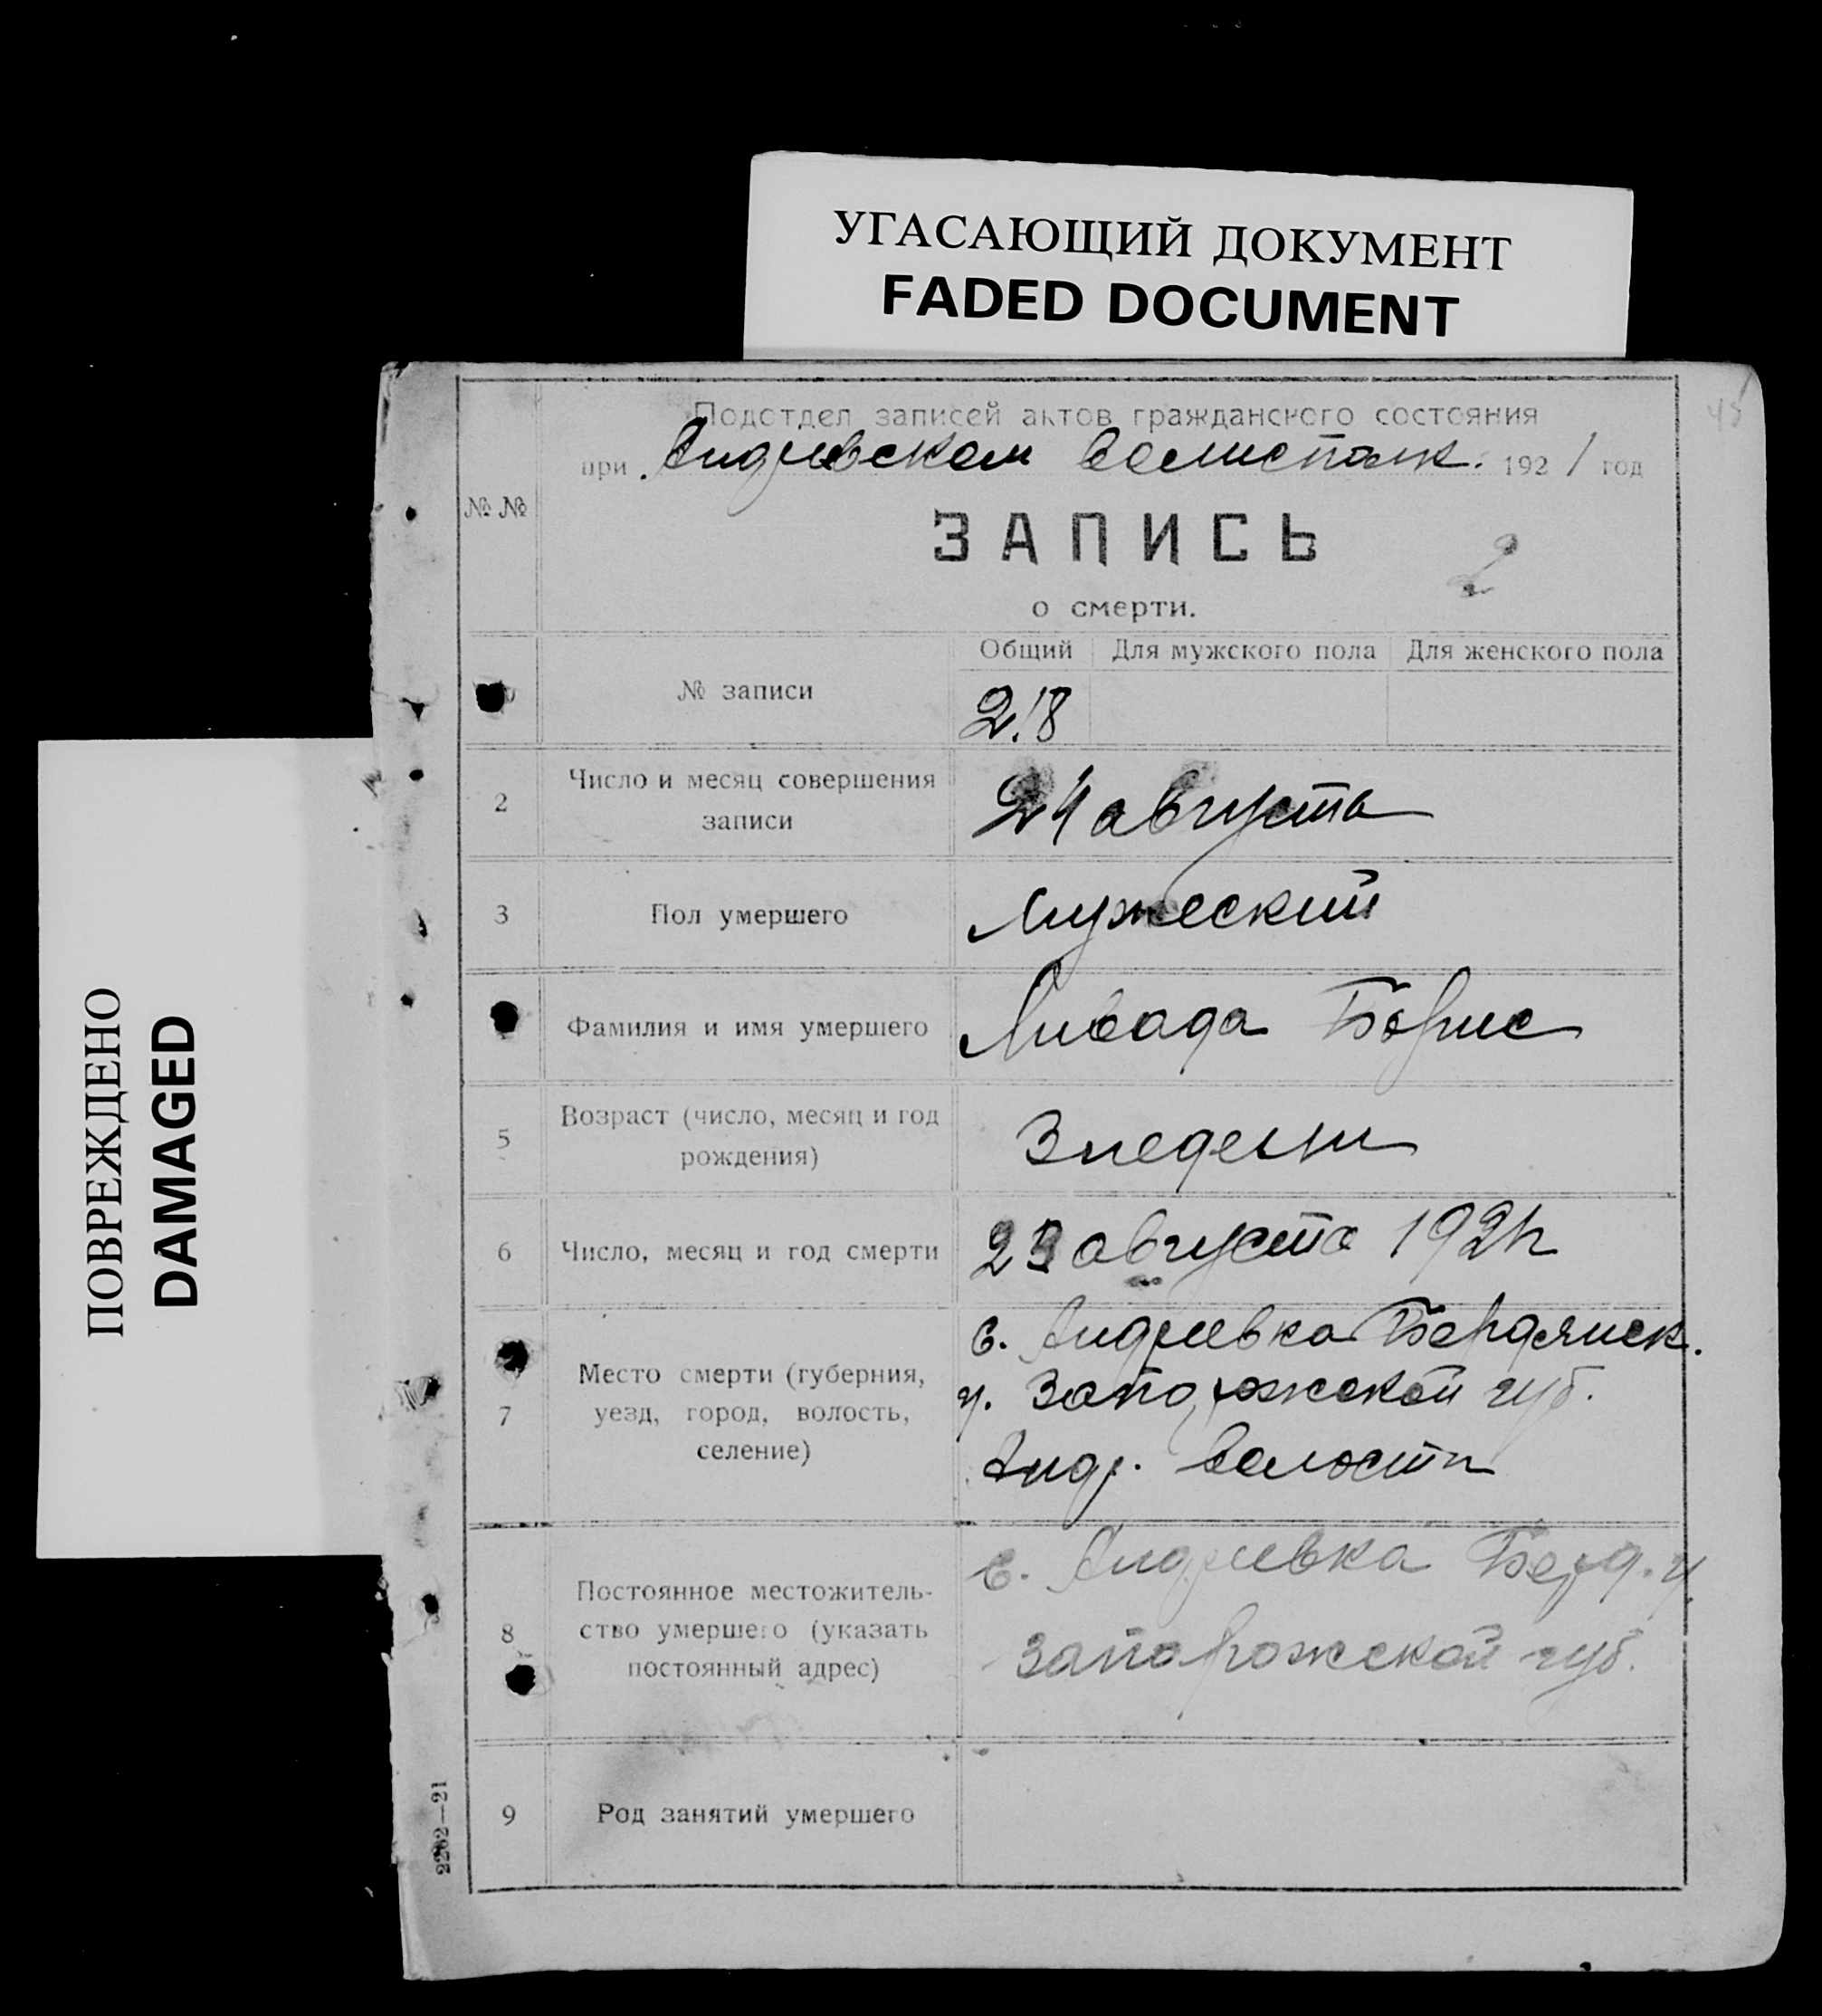 УГАСАЮЩИЙ ДОКУМЕНТ
FADED DOCUMENT
ПОВРЕЖДЕНО
DAMAGED
45
Подотдел записей актов гражданского состояния
при Андреевском Волисполк. 1921 год
№ №
ЗАПИСЬ
2
о смерти.
Общий Для мужского пола Для женского пола
№ записи 218
2 Число и месяц совершения
записи
24 августа
3 Пол умершего Мужеский
Фамилия и имя умершего Ливада Борис
5 Возраст (число, месяц и год
рождения)
3 недели
6 Число, месяц и год смерти 23 августа 1921 г.
7 Место смерти (губерния,
уезд, город, волость,
селение)
с. Андреевка Бердянск.
у. Запорожской губ.
Андр. волости
8 Постоянное местожитель-
ство умершего (указать
постоянный адрес)
с. Андреевка Берд. у.
Запорожской губ.
9 Род занятий умершего
2262—21